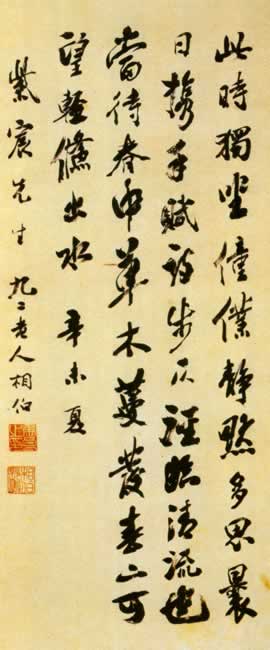 此時獨坐僮僕靜默多思曩
日攜手賦詩步仄逕臨清流也
當待春中草木蔓發春山可
望輕鯈出水 辛未夏
紫宸先生 九二老人相伯